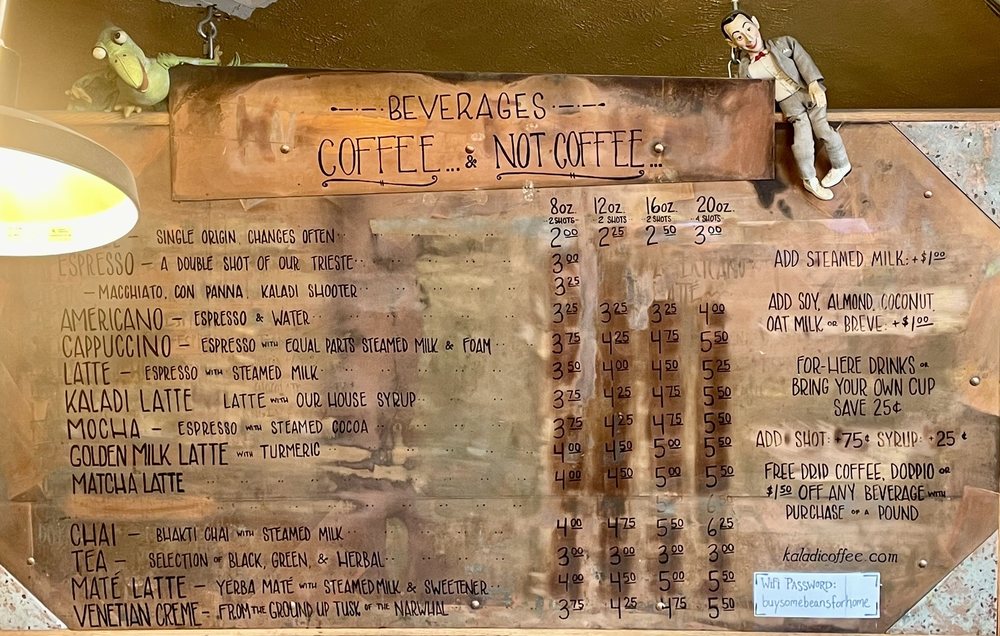 BEVERAGES
COFFEE... & NOT COFFEE...
8oz. 12oz. 16oz. 20oz.
2 SHOTS 2 SHOTS 2 SHOTS 4 SHOTS
– SINGLE ORIGIN, CHANGES OFTEN 2 00 2 25 2 50 3 00
ESPRESSO – A DOUBLE SHOT OF OUR TRIESTE 3 00
– MACCHIATO, CON PANNA, KALADI SHOOTER 3 25
AMERICANO – ESPRESSO & WATER 3 25 3 25 3 25 4 00
CAPPUCCINO – ESPRESSO WITH EQUAL PARTS STEAMED MILK & FOAM 3 75 4 25 4 75 5 50
LATTE – ESPRESSO WITH STEAMED MILK 3 50 4 00 4 50 5 25
KALADI LATTE LATTE WITH OUR HOUSE SYRUP 3 75 4 25 4 75 5 50
MOCHA – ESPRESSO WITH STEAMED COCOA 3 75 4 25 4 75 5 50
GOLDEN MILK LATTE WITH TURMERIC 4 00 4 50 5 00 5 50
MATCHA LATTE 4 00 4 50 5 00 5 50
CHAI – BHAKTI CHAI WITH STEAMED MILK 4 00 4 75 5 50 6 25
TEA – SELECTION OF BLACK, GREEN, & HERBAL 3 00 3 00 3 00 3 00
MATÉ LATTE – YERBA MATÉ WITH STEAMED MILK & SWEETENER 4 00 4 50 5 00 5 50
VENETIAN CREME – FROM THE GROUND UP TUSK OF THE NARWHAL 3 75 4 25 4 75 5 50
ADD STEAMED MILK: +$1 00
ADD SOY, ALMOND, COCONUT
OAT MILK OR BREVE: +$1 00
FOR-HERE DRINKS OR
BRING YOUR OWN CUP
SAVE 25¢
ADD SHOT: +75¢ SYRUP: +25¢
FREE DRIP COFFEE, DOPPIO OR
$1 50 OFF ANY BEVERAGE WITH
PURCHASE OF A POUND
kaladicoffee.com
WiFi PASSWORD:
buysomebeansforhome